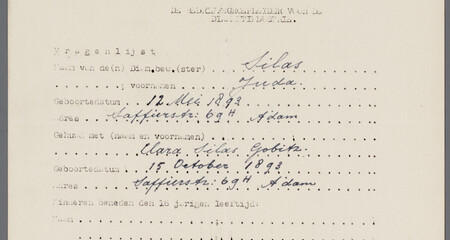 DE BEDRIJFSGEMEENTER VOOR DE
DIAMANTINDUSTRIE.
Vragenlijst
Naam van de(n) Diam.bew.(ster) Silas
" ; voornamen Juda
Geboortedatum 12 Mei 1893
Adres Saffierstr: 69H A'dam
Gehuwd met (naam en voornamen)
Clara Silas Gobitz
Geboortedatum 15 October 1893
Adres Saffierstr: 69H A'dam
Kinderen beneden den 16 jarigen leeftijd:
Naam